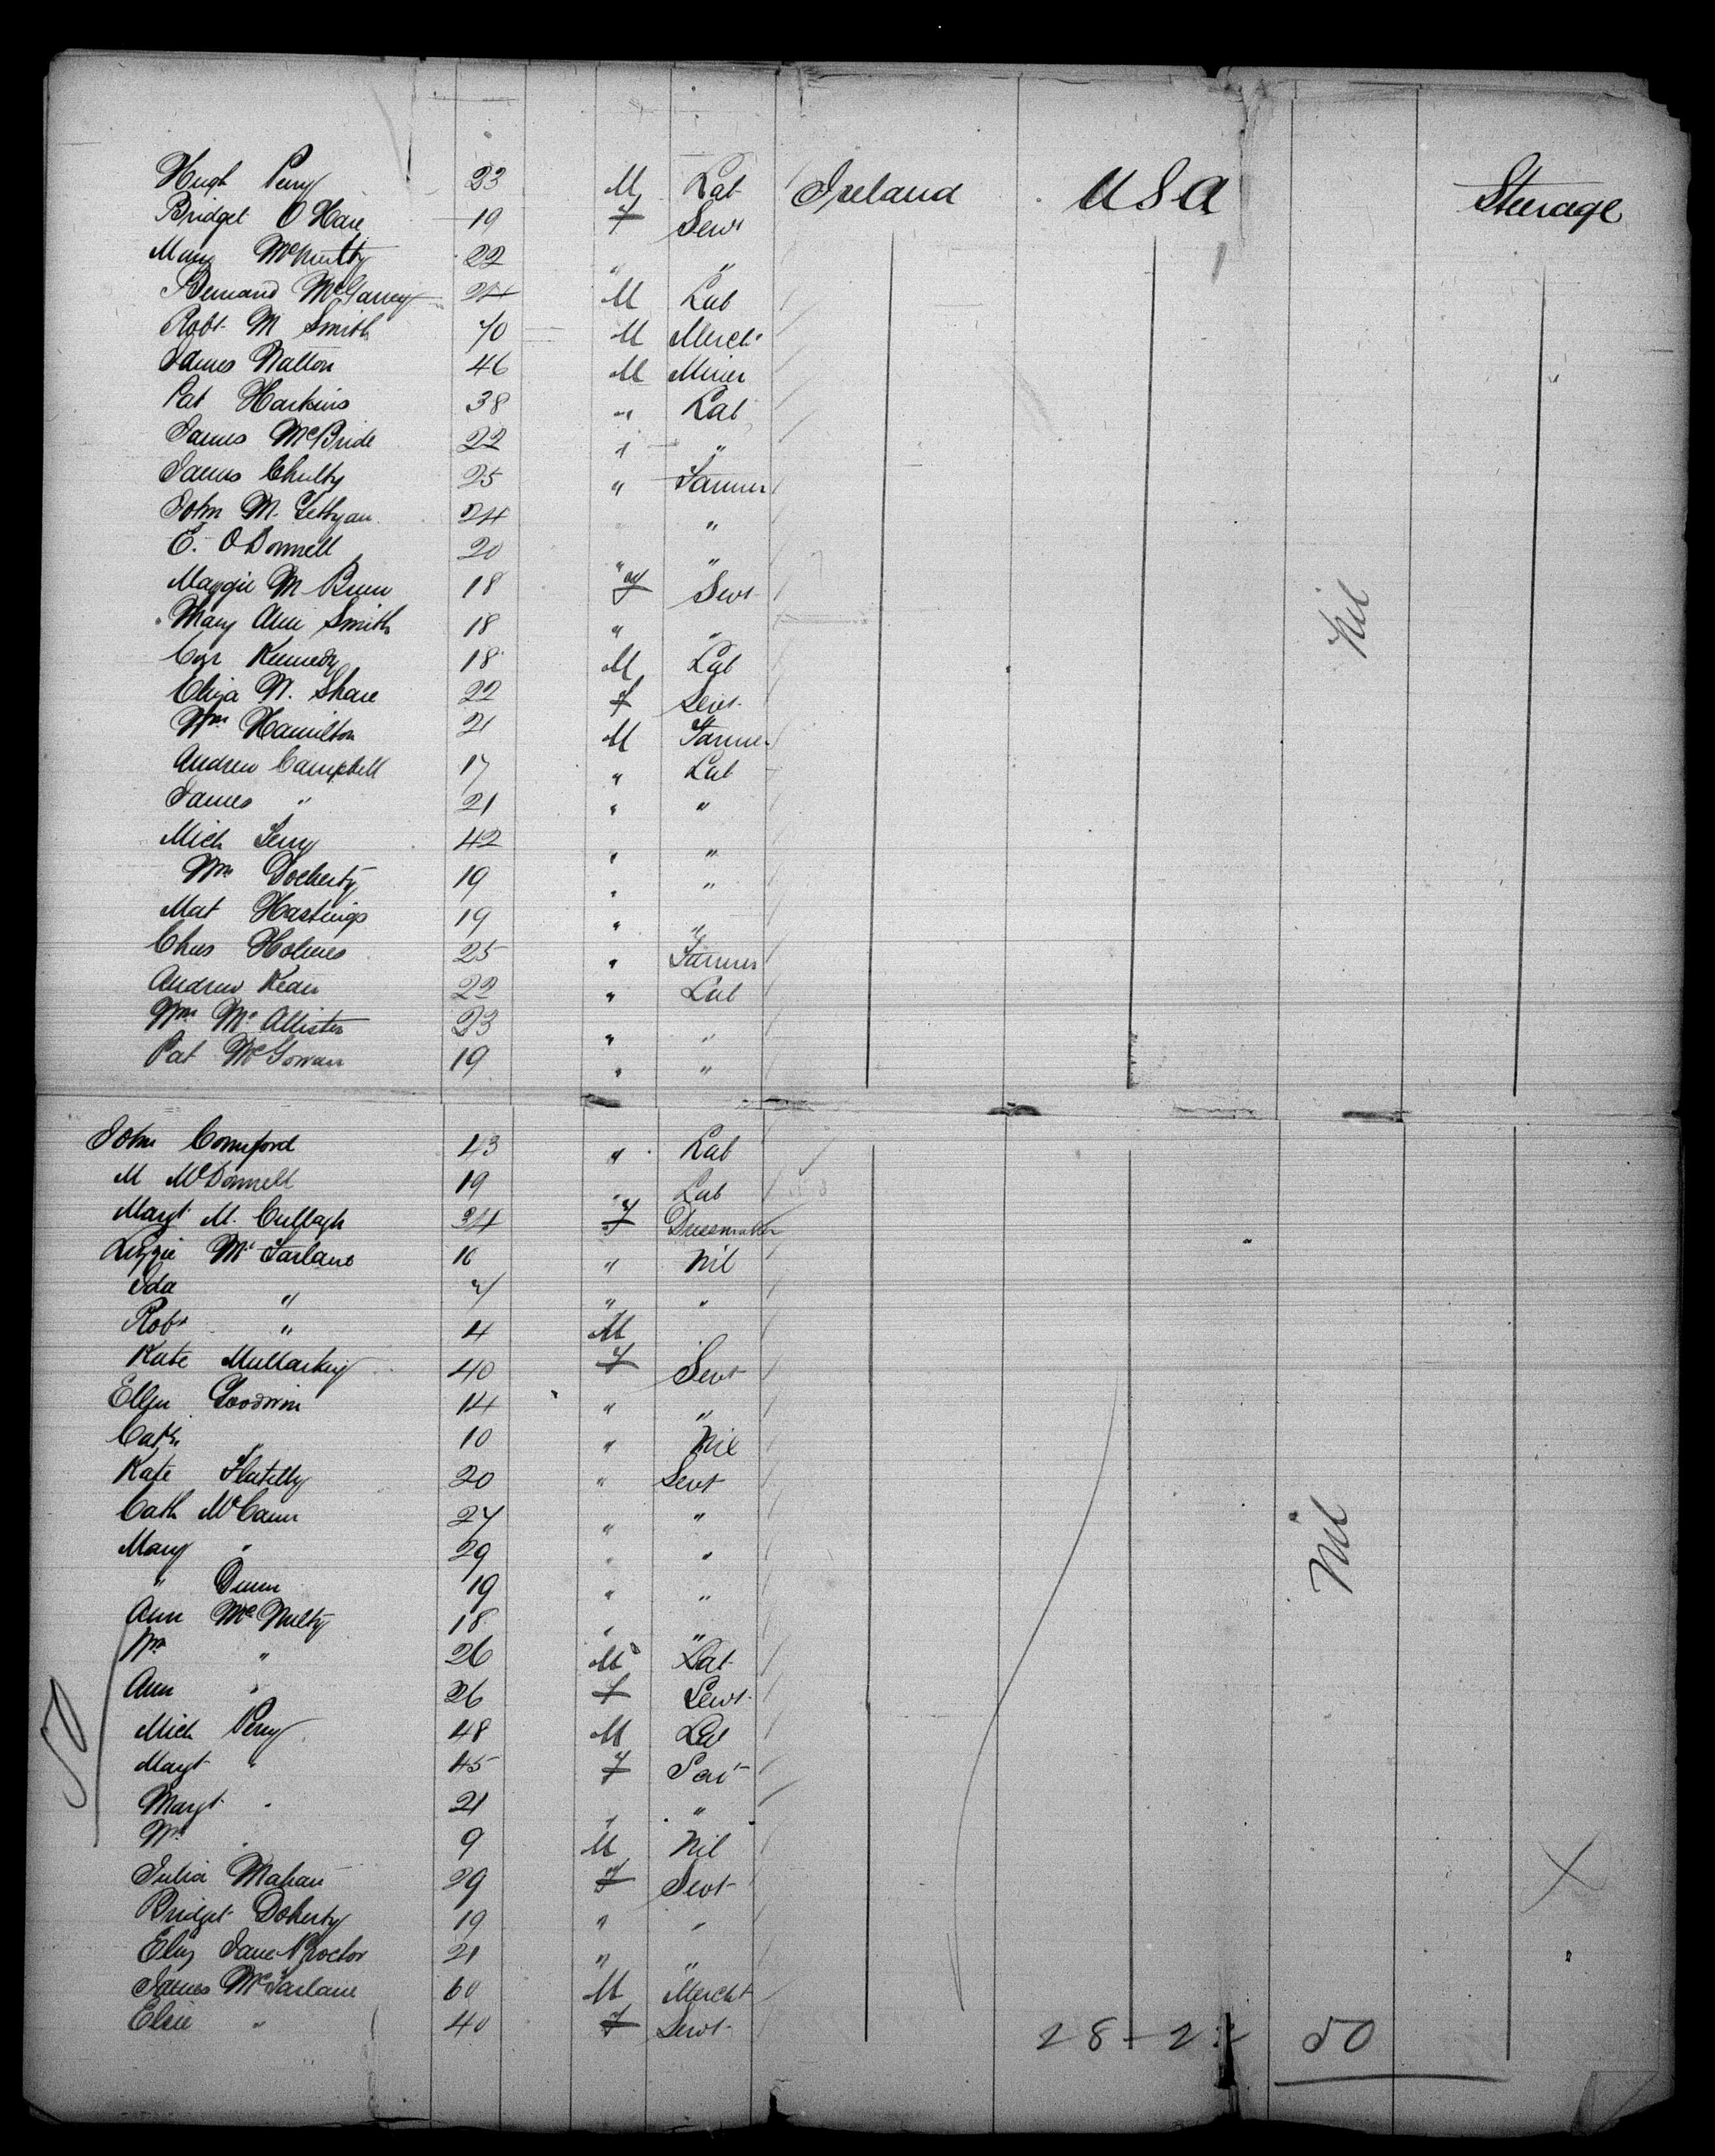 Hugh Perry 23 M Lab Ireland USA Steerage
Bridget O'Hare 19 F Servt
Mary McNulty 22 " "
Bernard McGarvey 24 M Lab
Robt M Smith 70 M Mercht
James Walton 46 M Miner "
Pat Harkins 38 " Lab
James McBride 22 " "
James Chulty 25 " Farmer
John M. 24 "
E. O'Donnell 20 " "
Maggie M 18 F Servt
Mary Ann Smith 18 " "
Kennedy 18 M Lab
Eliza N. Share 22 F Servt
Wm Hamilton 21 M Farmer
Andrew Campbell 17 " Lab
James " 21 " "
Mich 42 " "
Wm Docherty 19 " "
Mat Hastings 19 " "
Chas Holmes 25 " Farmer
Andrew 22 " Lab
Wm McAllister 23 " "
Pat McGowan 19 " "
Nil
John 43 " Lab
M McDonnell 19 " Lab
Margt M. Cullagh 34 F Dressmaker
Lizzie McFarlane 16 " Nil
Ida " 7 " "
Robt " 4 M "
Kate Mullarkey 40 F Servt
Ellen Goodwin 14 " "
Cath " 10 " Nil
Kate Flatelly 20 " Servt
Cath McCann 27 " "
Mary " 29 " "
" Dunn 19 " "
Ann McNulty 18 " "
Wm " 26 M Lab
Ann " 26 F Servt
Mich Perry 48 M Lab
Margt " 45 F Servt
Margt " 21 " "
Wm " 9 M Nil
Julia Mahan 29 F Servt
Bridget Doherty 19 " "
Eliz Jane Proctor 21 " "
James McFarlane 60 M Mercht
Elsie " 40 F Servt
Nil
50
28-22 50